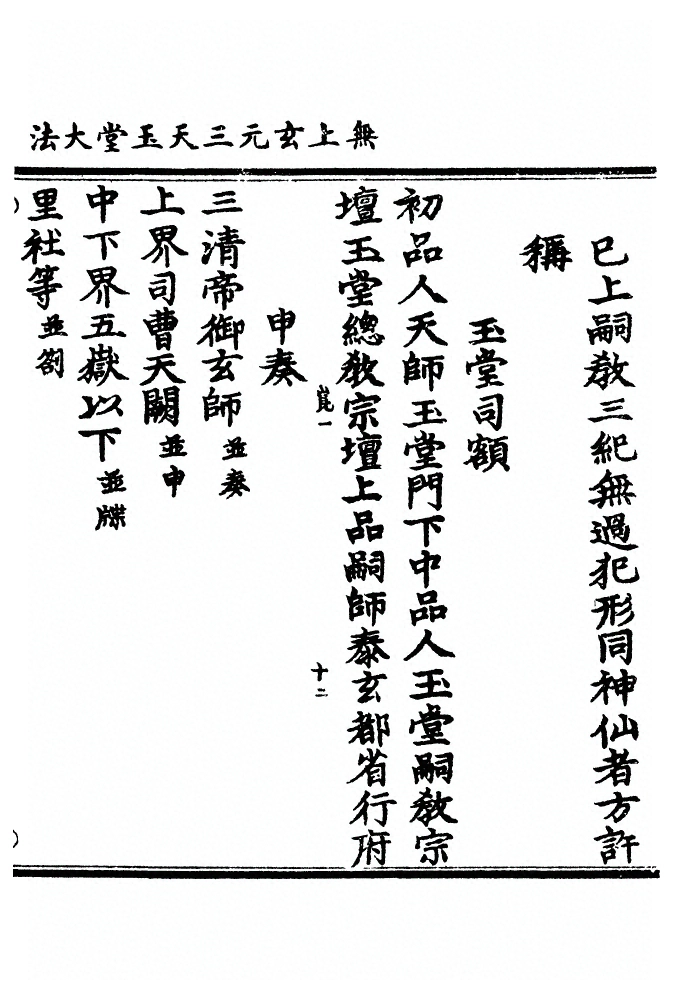 無上玄元三天玉堂大法
已上嗣教三紀無過犯形同神仙者方許
稱
玉堂司額
初品人天師玉堂門下中品人玉堂嗣教宗
壇玉堂總教宗壇上品嗣師泰玄都省行府
崑一
十二
申奏
三清帝御玄師並奏
上界司曹天闕並申
中下界五嶽以下並牒
里社等並劄